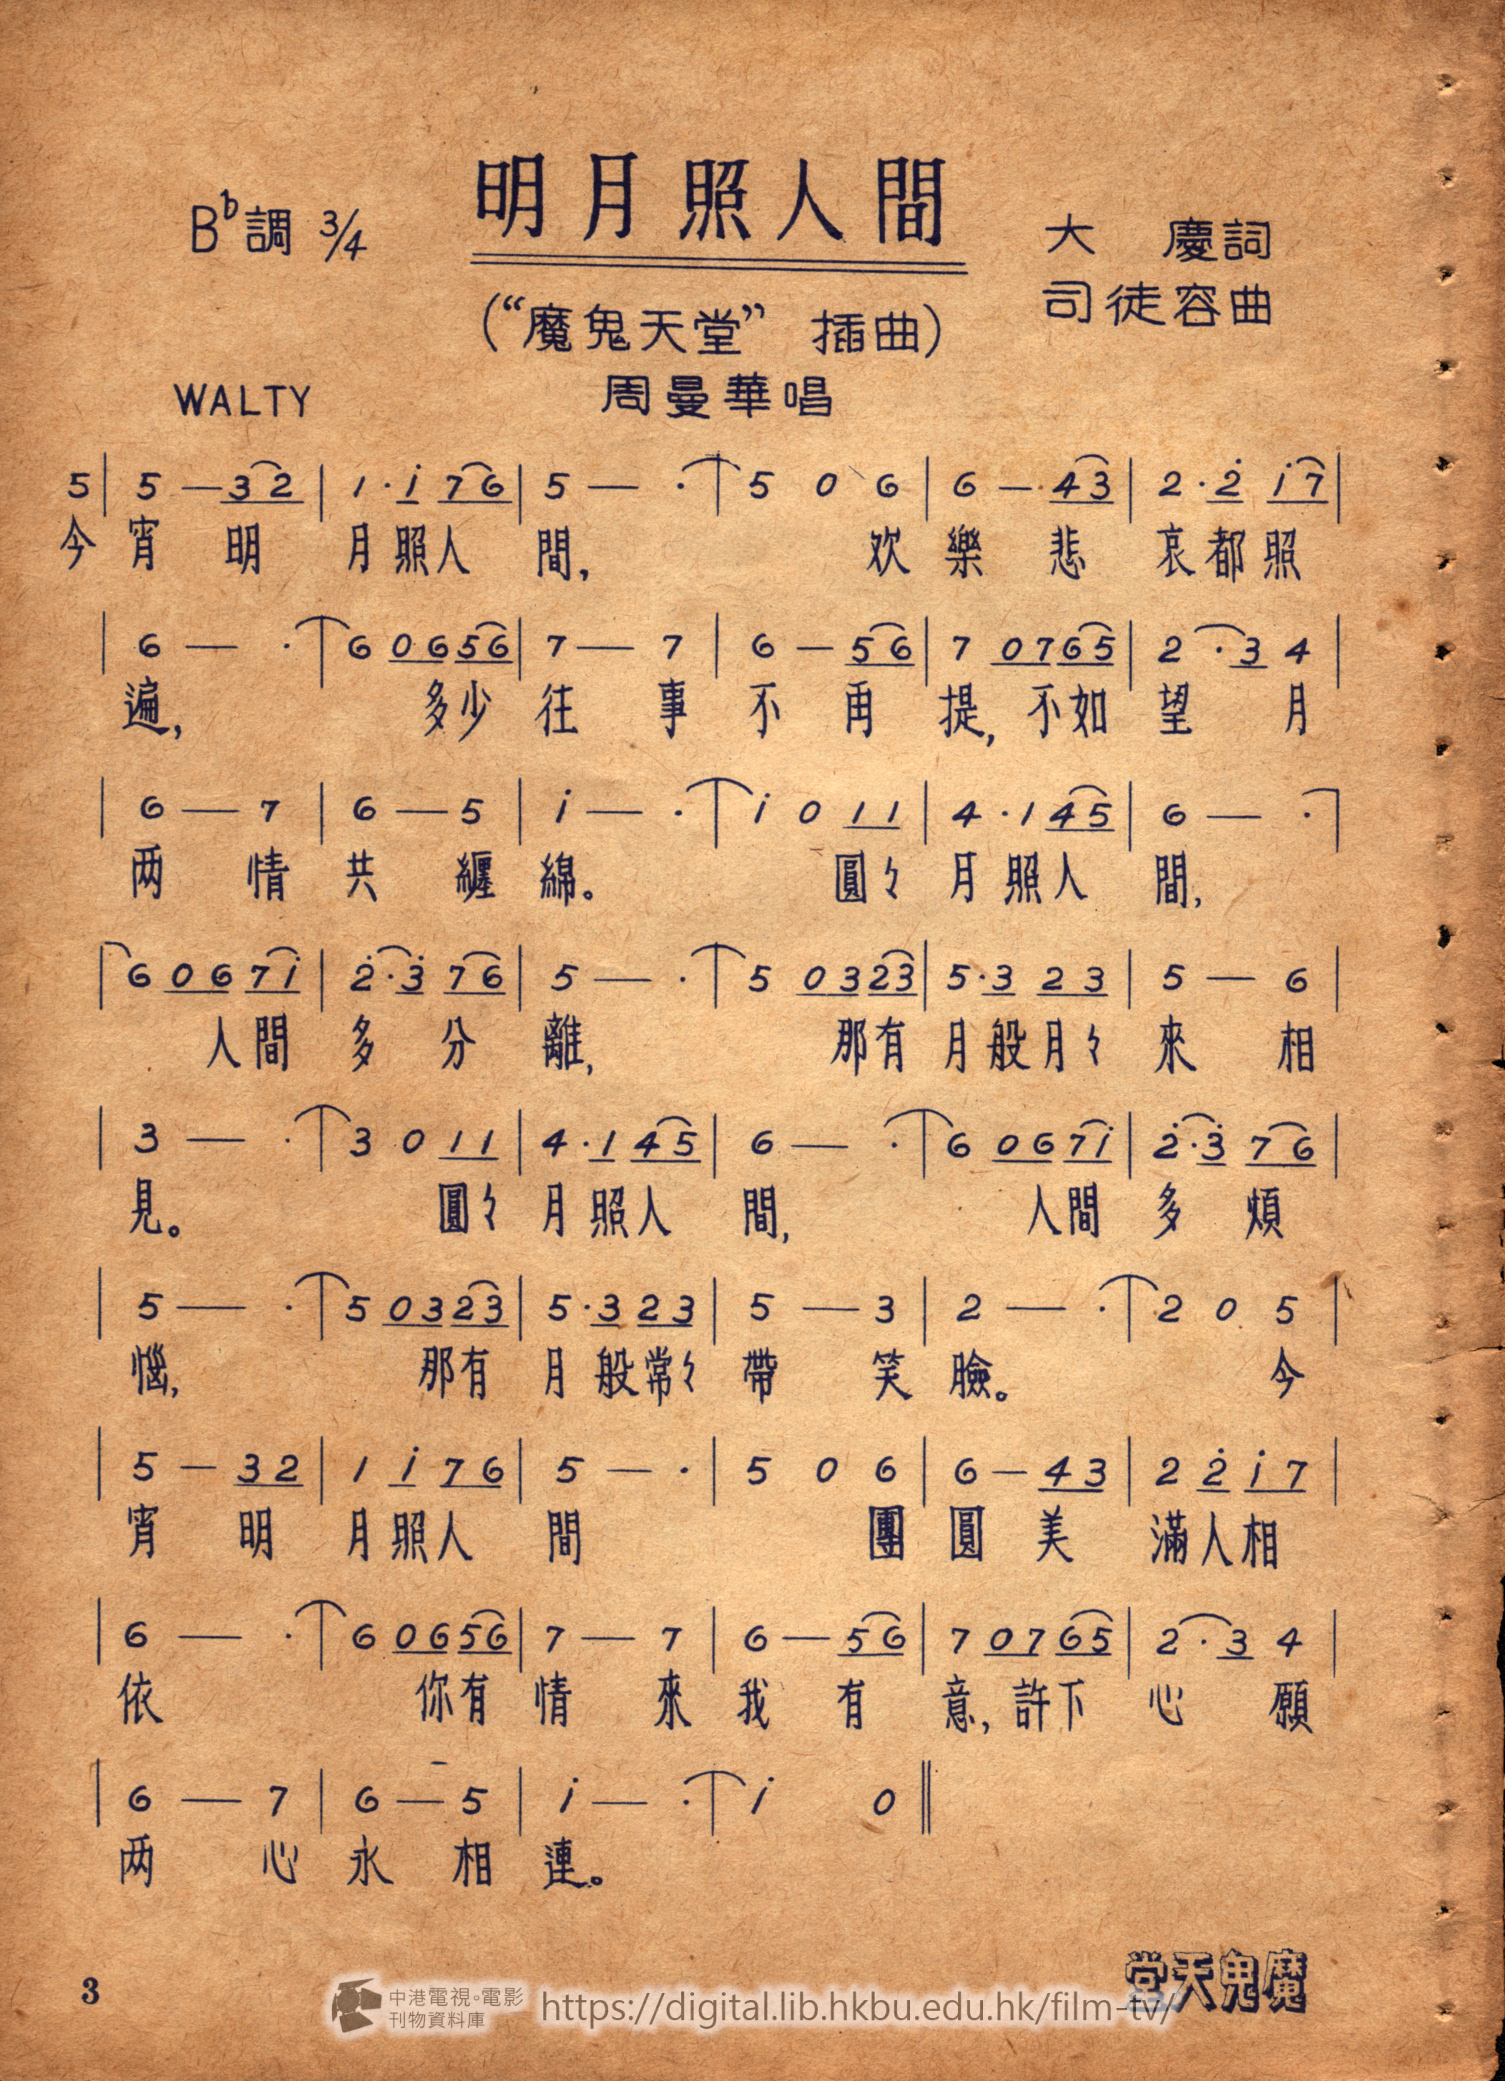 明月照人間
B♭調 3/4
大 慶詞
司徒容曲
(“魔鬼天堂” 插曲)
WALTY
周曼華唱
5 | 5 — 3 2 | 1 · i 7 6 | 5 — · | 5 0 6 | 6 — · 4 3 | 2 · 2̇ i 7 |
今 宵 明 月 照 人 間, 欢 樂 悲 哀 都 照
| 6 — · | 6 0 6 5 6 | 7 — 7 | 6 — 5 6 | 7 0 7 6 5 | 2 · 3 4 |
遍, 多少 往 事 不 再 提, 不如 望 月
| 6 — 7 | 6 — 5 | i — · | i 0 1 1 | 4 · 1 4 5 | 6 — · |
两 情 共 纏 綿。 圓々 月 照 人 間,
| 6 0 6 7 i | 2̇ · 3̇ 7 6 | 5 — · | 5 0 3 2 3 | 5 · 3 2 3 | 5 — 6 |
人間 多 分 離, 那有 月 般 月々 來 相
| 3 — · | 3 0 1 1 | 4 · 1 4 5 | 6 — · | 6 0 6 7 i | 2̇ · 3̇ 7 6 |
見。 圓々 月 照 人 間, 人間 多 煩
| 5 — · | 5 0 3 2 3 | 5 · 3 2 3 | 5 — 3 | 2 — · | 2 0 5 |
惱, 那有 月 般 常々 帶 笑 臉。 今
| 5 — 3 2 | 1 i 7 6 | 5 — · | 5 0 6 | 6 — 4 3 | 2 2̇ i 7 |
宵 明 月 照 人 間 團 圓 美 滿 人 相
| 6 — · | 6 0 6 5 6 | 7 — 7 | 6 — 5 6 | 7 0 7 6 5 | 2 · 3 4 |
依 你有 情 來 我 有 意, 許下 心 願
| 6 — 7 | 6 — 5 | i — · | i 0 ‖
两 心 永 相 連。
3
中港電視·電影
刊物資料庫
https://digital.lib.hkbu.edu.hk/film-tv/
堂天鬼魔